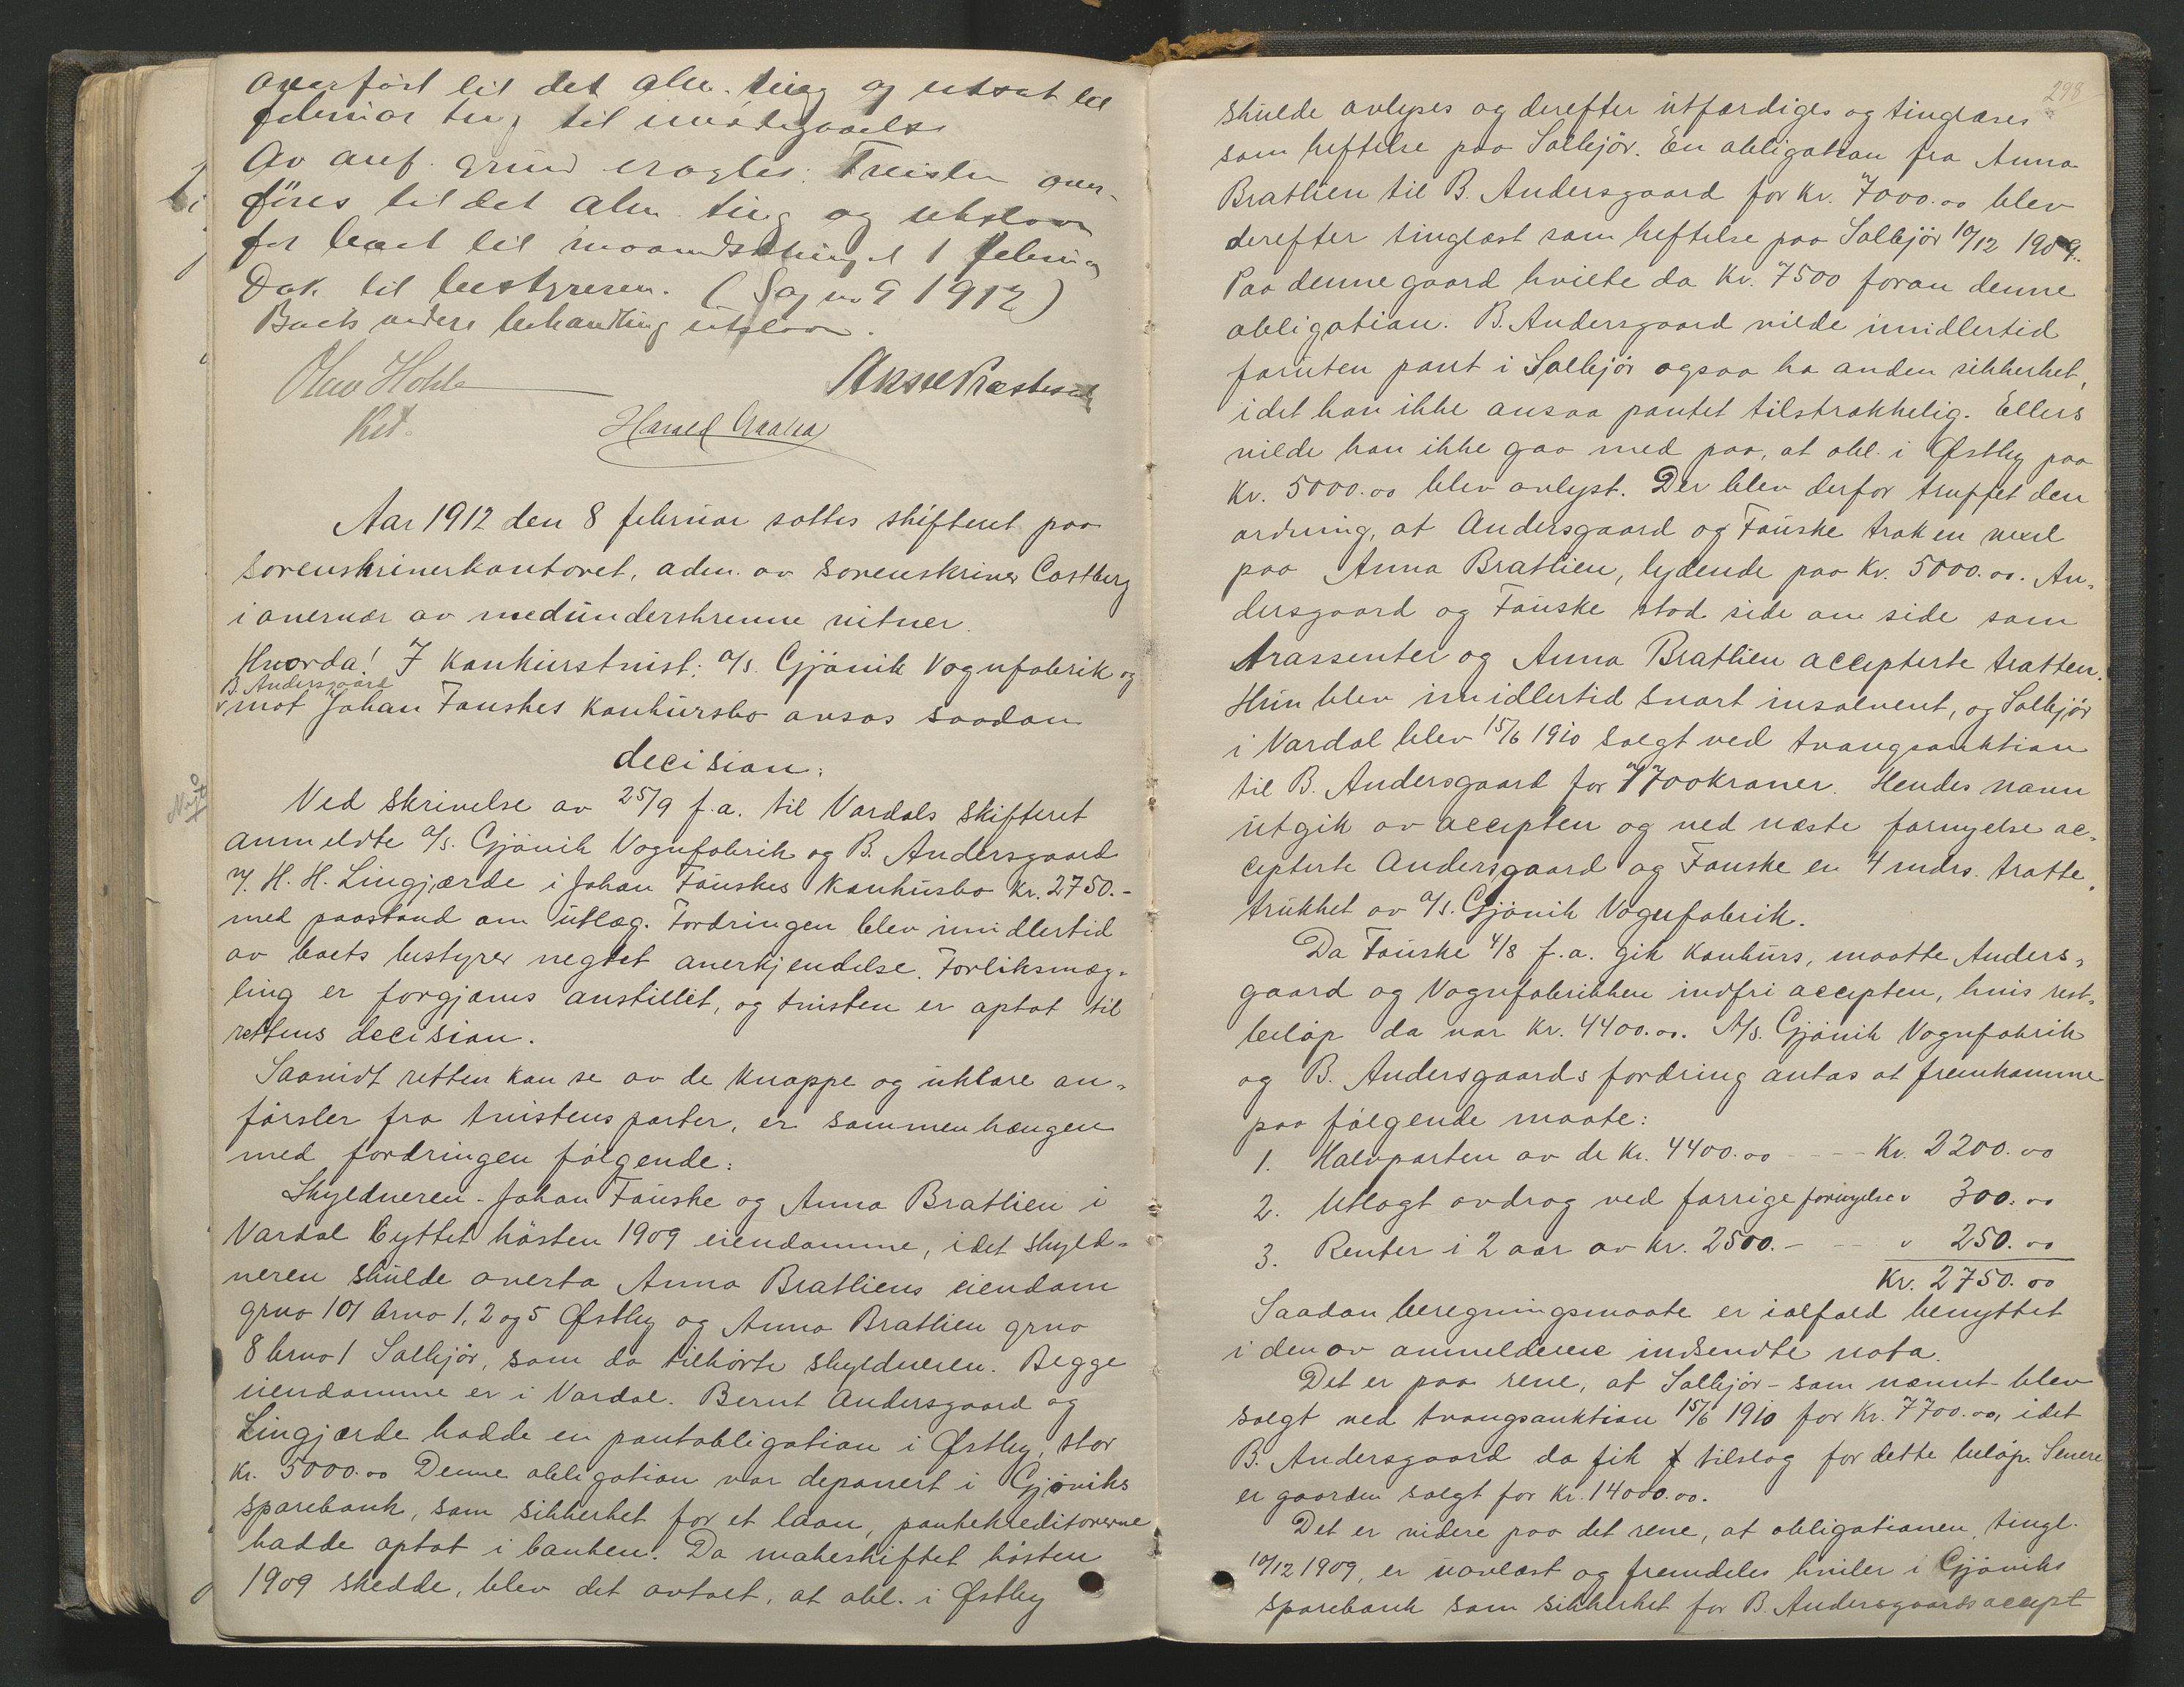 overført til det alm. ting og utsat til
februar ting til imøtegaaelse
Av anf. grund eragtes: Tvisten over-
føres til det alm. ting og utstaar
for boet til maanedstinget 1 februar
Dok. til bestyreren. (Sag no 9 1912)
Boets videre behandling utstaar.
Olav Hohle
Harald
Aar 1912 den 8 februar sattes skifteret paa
sorenskriverkontoret, adm. av sorenskriver Castberg
i overvær av medunderskrevne vitner.
Hvorda! I konkurstvist: A/s. Gjøvik Vognfabrik og
B. Andersgaard
mot Johan Fauskes konkursbo avsas saadan
decision:
Ved skrivelse av 25/9 f.a. til Vardals skifteret
Not.
anmeldte A/s. Gjøvik Vognfabrik og B. Andersgaard
v/. H. H. Lingjærde i Johan Fauskes konkusbo Kr. 2750.-
med paastand om utlæg. Fordringen blev imidlertid
av boets bestyrer negtet anerkjendelse. Forliksmæg-
ling er forgjæves anstillet, og tvisten er optat til
rettens decision.
Saavidt retten kan se av de knappe og uklare an-
førsler fra tvistens parter, er sammenhængen
med fordringen følgende:
Skyldneren - Johan Fauske og Anna Bratlien i
Vardal byttet høsten 1909 eiendomme, idet skyld-
neren skulde overta Anna Bratliens eiendom
grno 101 brno 1, 2 og 5 Østby og Anna Bratlien grno
8 brno 1 Salbjør, som da tilhørte skyldneren. Begge
eiendomme er i Vardal. Bernt Andersgaard og
Lingjærde hadde en pantobligation i Østby, stor
Kr. 5000.00 Denne obligation var deponert i Gjøviks
sparebank, som sikkerhet for et laan, pantekreditorerne
hadde optat i banken. Da makeskiftet høsten
1909 skedde, blev det avtalt, at obl. i Østby
298
skulde avlyses og derefter utfærdiges og tinglæses
som heftelse paa Salbjør. En obligation fra Anna
Bratlien til B. Andersgaard for Kr. 7000.00 blev
derefter tinglæst som heftelse paa Salbjør 10/12 1909.
Paa denne gaard hvilte da Kr. 7500 foran denne
obligation. B. Andersgaard vilde imidlertid
foruten pant i Salbjør ogsaa ha anden sikkerhet,
idet han ikke ansaa pantet tilstrækkelig. Ellers
vilde han ikke gaa med paa, at obl. i Østby paa
Kr. 5000.00 blev avlyst. Der blev derfor truffet den
ordning, at Andersgaard og Fauske trak en vexel
paa Anna Bratlien, lydende paa Kr. 5000.00. An-
dersgaard og Fauske stod side om side som
trassenter og Anna Bratlien accepterte tratten.
Hun blev imidlertid snart insolvent, og Salbjør
i Vardal blev 15/6 1910 solgt ved tvangsauktion
til B. Andersgaard for 7700 kroner. Hendes navn
utgik av accepten og ved næste fornyelse ac-
cepterte Andersgaard og Fauske en 4 mdrs. tratte,
trukket av A/s. Gjøvik Vognfabrik.
Da Fauske 4/8 f.a. gik konkurs, maatte Anders-
gaard og Vognfabrikken indfri accepten, hvis rest-
beløp da var Kr. 4400.00. A/s. Gjøvik Vognfabrik
og B. Andersgaards fordring antas at fremkomme
paa følgende maate:
1. Halvparten av de Kr. 4400.00 - - - - Kr. 2200.00
2. Utlagt avdrag ved forrige fornyelse " 300.00
3. Renter i 2 aar av Kr. 2500.- - - " 250.00
Kr. 2750.00
Saadan beregningsmaate er ialfald benyttet
i den av anmelderne indsendte nota.
Det er paa rene, at Salbjør - som nævnt - blev
solgt ved tvangsauktion 15/6 1910 for Kr. 7700.00, idet
B. Andersgaard da fik tilslag for dette beløp. Senere
er gaarden solgt for Kr. 14000.00.
Det er videre paa det rene, at obligationen, tingl.
10/12 1909, er uavlæst og fremdeles hviler i Gjøviks
sparebank som sikkerhet for B. Andersgaards accept